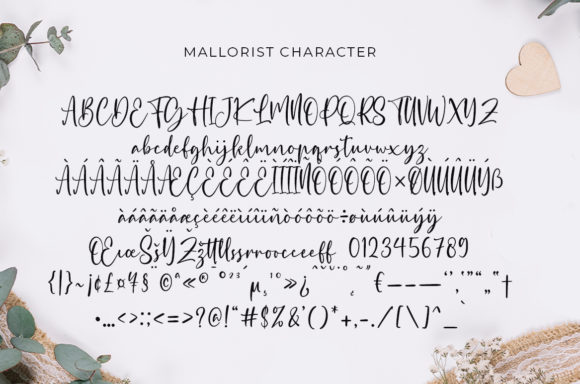 MALLORIST CHARACTER
ABCDEFGHIJKLMNOPQRSTUVWXYZ
abcdefghijklmnopqrstuvwxyz
ÀÁÂÃÄÅÆÇÈÉÊËÌÍÎÏÑÒÓÔÕÖ×ØÙÚÛÜÝß
àáâãäåæçèéêëìíîïñòóôõö÷øùúûüýÿ
0123456789
•…<>:;<=>?@!"#$%&'()*+,-./[\]^_